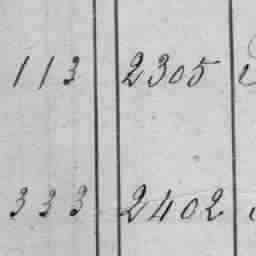 113 2305
333 2402